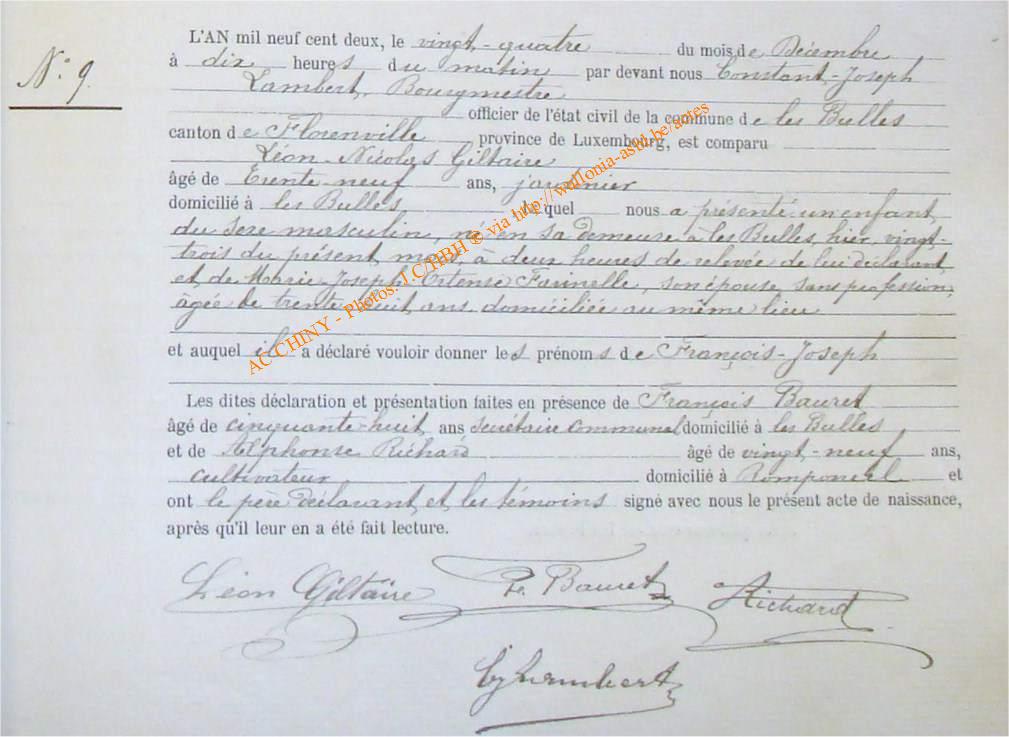 L'AN mil neuf cent deux, le vingt-quatre du mois de Décembre
N° 9.
à dix heures du matin par devant nous Constant-Joseph
Lambert, Bourgmestre
officier de l'état civil de la commune de les Bulles
canton de Florenville province de Luxembourg, est comparu
Léon-Nicolas Giltaire
âgé de trente-neuf ans, jardinier
domicilié à les Bulles lequel nous a présenté un enfant
du sexe masculin, né en sa demeure à les Bulles, hier, vingt-
trois du présent mois, à deux heures de relevée de lui déclarant
et de Marie-Joseph-Ortense Farinelle, son épouse, sans profession,
âgée de trente-huit ans domiciliée au même lieu
et auquel il a déclaré vouloir donner les prénoms de François-Joseph
Les dites déclaration et présentation faites en présence de François Bauret
âgé de cinquante-huit ans secrétaire communal domicilié à les Bulles
et de Alphonse Richard âgé de vingt-neuf ans,
cultivateur domicilié à Romponcel et
ont le père déclarant et les témoins signé avec nous le présent acte de naissance,
après qu'il leur en a été fait lecture.
Léon Giltaire F. Bauret A Richard
Cj Lambert
AC CHINY - Photos: J.C/HBH ® via http://wallonia-asbl.be/actes